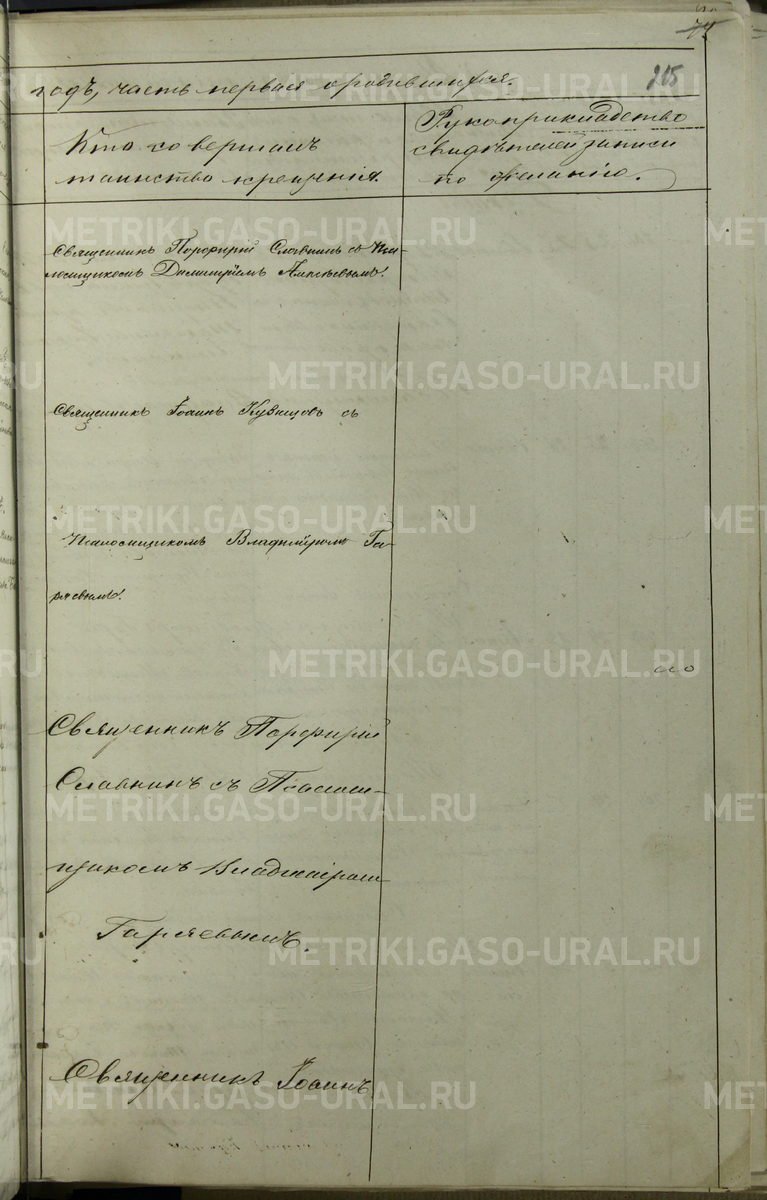 74
215
годъ, часть первая о родившихся.
Кто совершалъ
таинство крещенія.
Рукоприкладство
свидѣтелей записи
по желанію.
Священникъ Порфирий Славнинъ съ Пса-
ломщикомъ Димитріемъ
Священникъ Іоаннъ Кузнецовъ съ
Псаломщикомъ Владиміромъ Га-
ряевымъ.
Священникъ Порфирій
Славнинъ съ Псаломщи-
комъ Владиміромъ
Гаряевымъ.
Священникъ Іоаннъ
METRIKI.GASO-URAL.RU